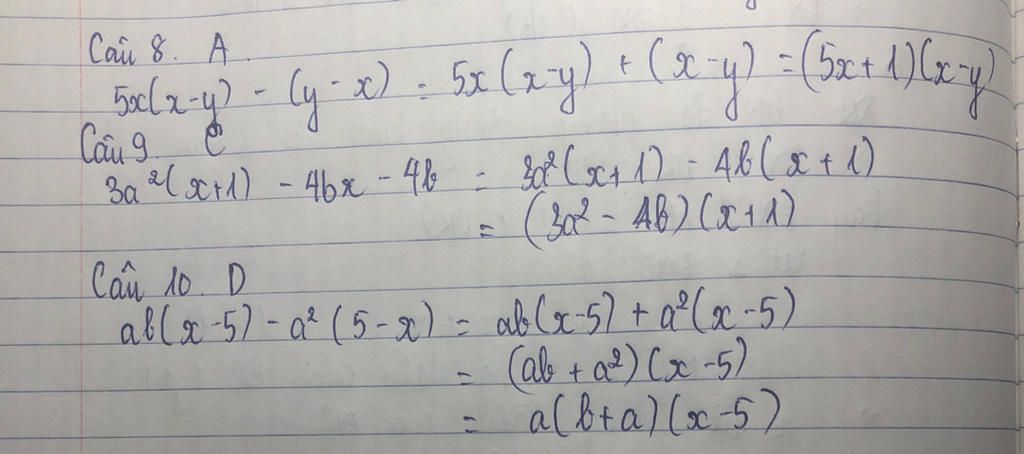 Câu 8. A.
5x(x-y) - (y-x) = 5x(x-y) + (x-y) = (5x+1)(x-y)
Câu 9. C
3a²(x+1) - 4bx - 4b = 3a²(x+1) - 4b(x+1)
= (3a² - 4b)(x+1)
Câu 10. D
ab(x-5) - a²(5-x) = ab(x-5) + a²(x-5)
= (ab + a²)(x-5)
= a(b+a)(x-5)